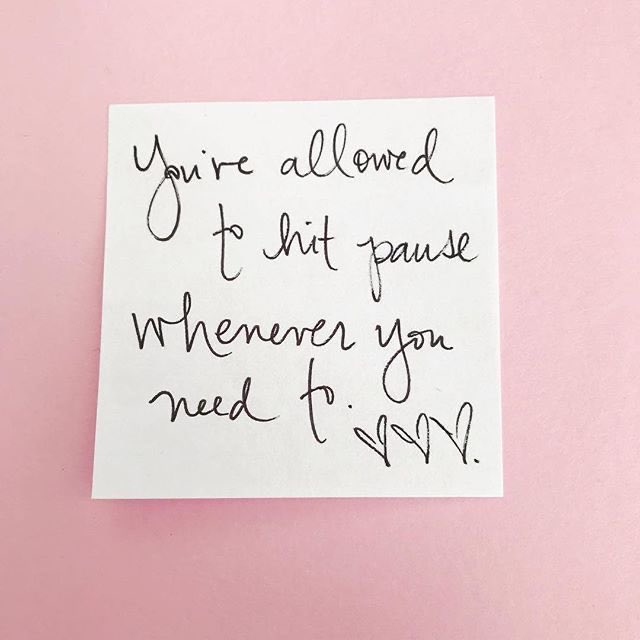 You're allowed
to hit pause
whenever you
need to. ♡♡♡.